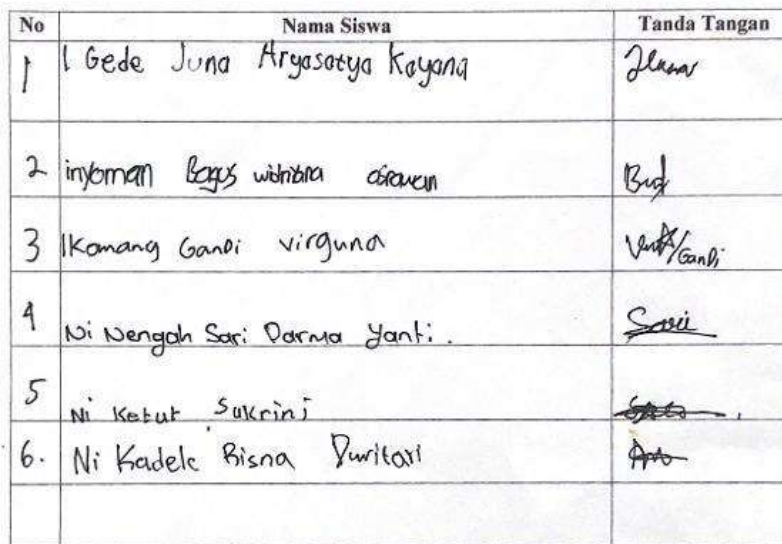 No Nama Siswa Tanda Tangan
1 I Gede Juna Aryasatya Kayana
2 inyoman Bagus
3 I Komang Gandi virguna Gandi
4 Ni Nengah Sari Darma Yanti. Sari
5 Ni Ketut Sukrini
6. Ni Kadek Risna